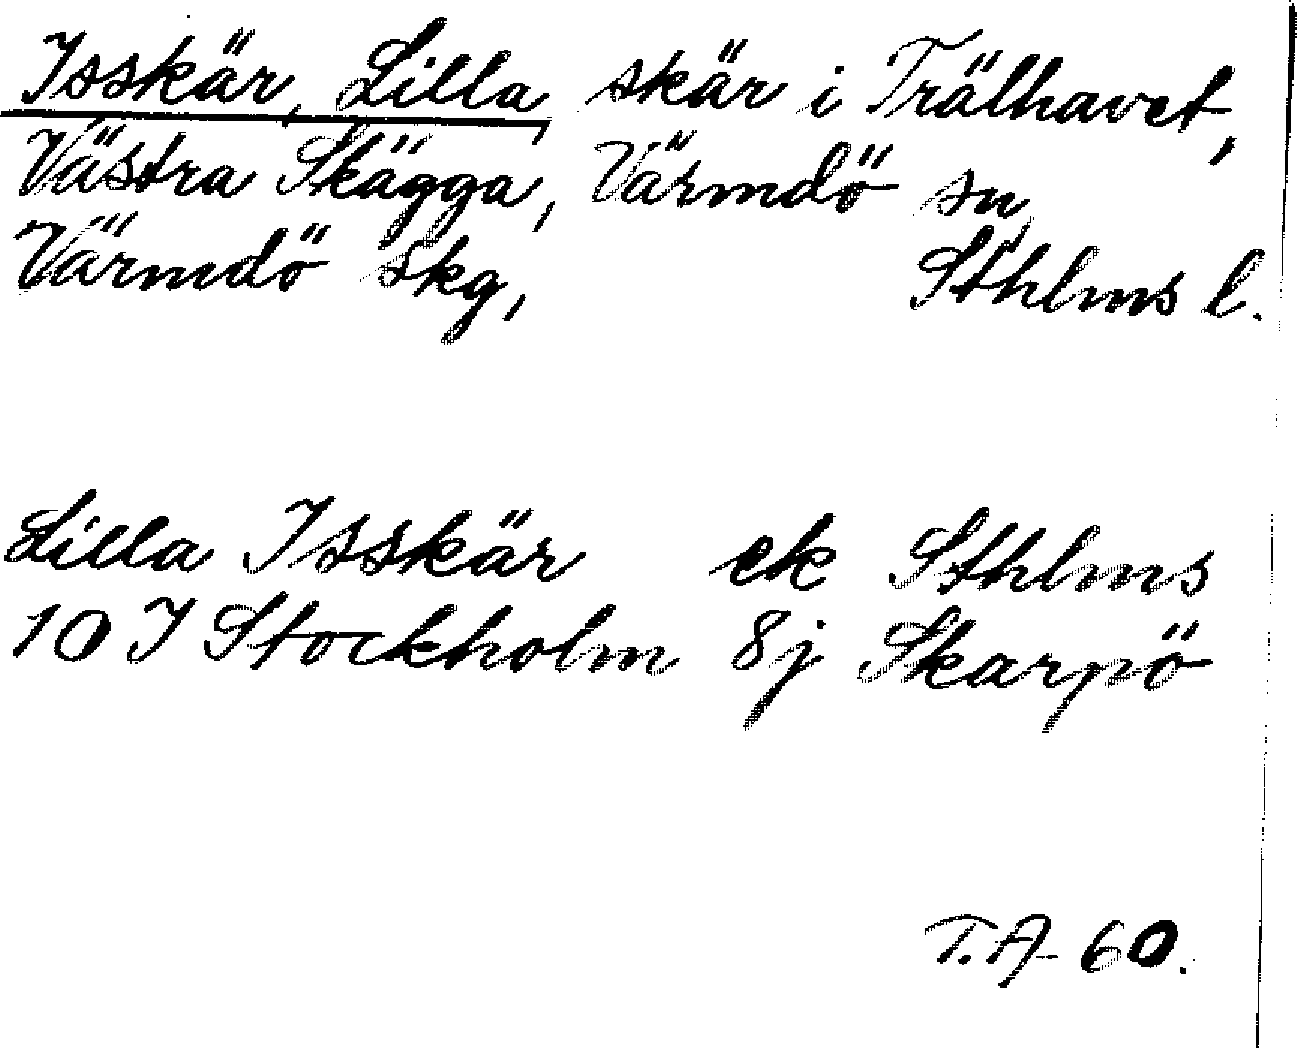 Isskär, Lilla, skär i Trälhavet,
Västra Skägga, Värmdö sn,
Värmdö skg, Sthlms l.
Lilla Isskär ek Sthlms
10 I Stockholm 8j Skarpö
T.A 60.